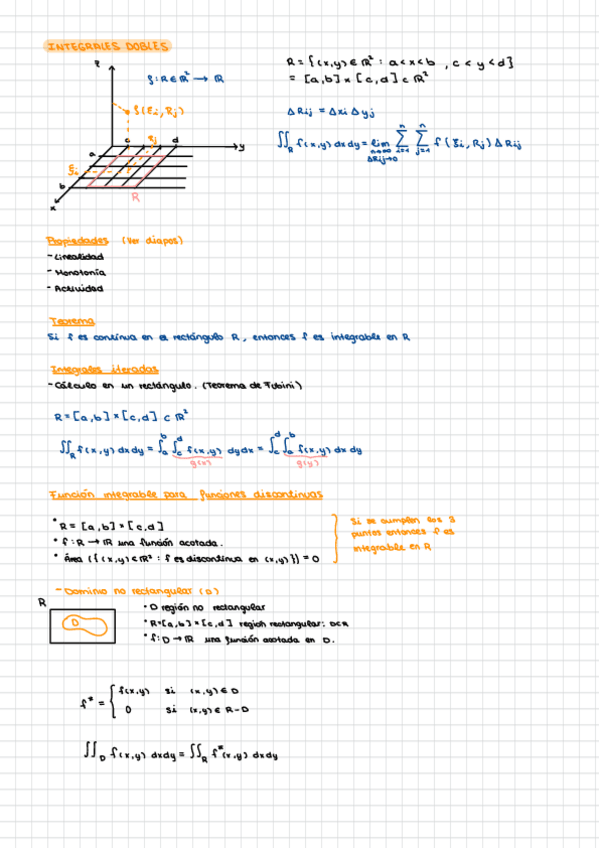 INTEGRALES DOBLES
R = {(x,y) ∈ ℝ² : a < x < b , c < y < d}
= [a,b] × [c,d] ⊂ ℝ²
f: R ∈ ℝ² → ℝ
f(ξi, Rj)
ΔRij = Δxi Δyj
∬_R f(x,y) dx dy = lim_{n→∞, ΔRij→0} Σ_{i=1}^{n} Σ_{j=1}^{n} f(ξi, Rj) ΔRij
c d y
a
ξi
b
x
R
Propiedades (Ver diapos)
- Linealidad
- Monotonía
Teorema
Si f es continua en el rectángulo R, entonces f es integrable en R
Integrales iteradas
- Cálculo en un rectángulo. (Teorema de Fubini)
R = [a,b] × [c,d] ⊂ ℝ²
∬_R f(x,y) dx dy = ∫_a^b ∫_c^d f(x,y) dy dx = ∫_c^d ∫_a^b f(x,y) dx dy
g(x) g(y)
Función integrable para funciones discontinuas
• R = [a,b] × [c,d]
• f: R → ℝ una función acotada.
• Área ({(x,y) ∈ ℝ² : f es discontinua en (x,y)}) = 0
Si se cumplen los 3
puntos entonces f es
integrable en R
- Dominio no rectangular (D)
R
D
• D región no rectangular
• R=[a,b] × [c,d] región rectangular: D⊂R
• f: D → ℝ una función acotada en D.
f* = { f(x,y) si (x,y) ∈ D
0 si (x,y) ∈ R-D
∬_D f(x,y) dx dy = ∬_R f*(x,y) dx dy